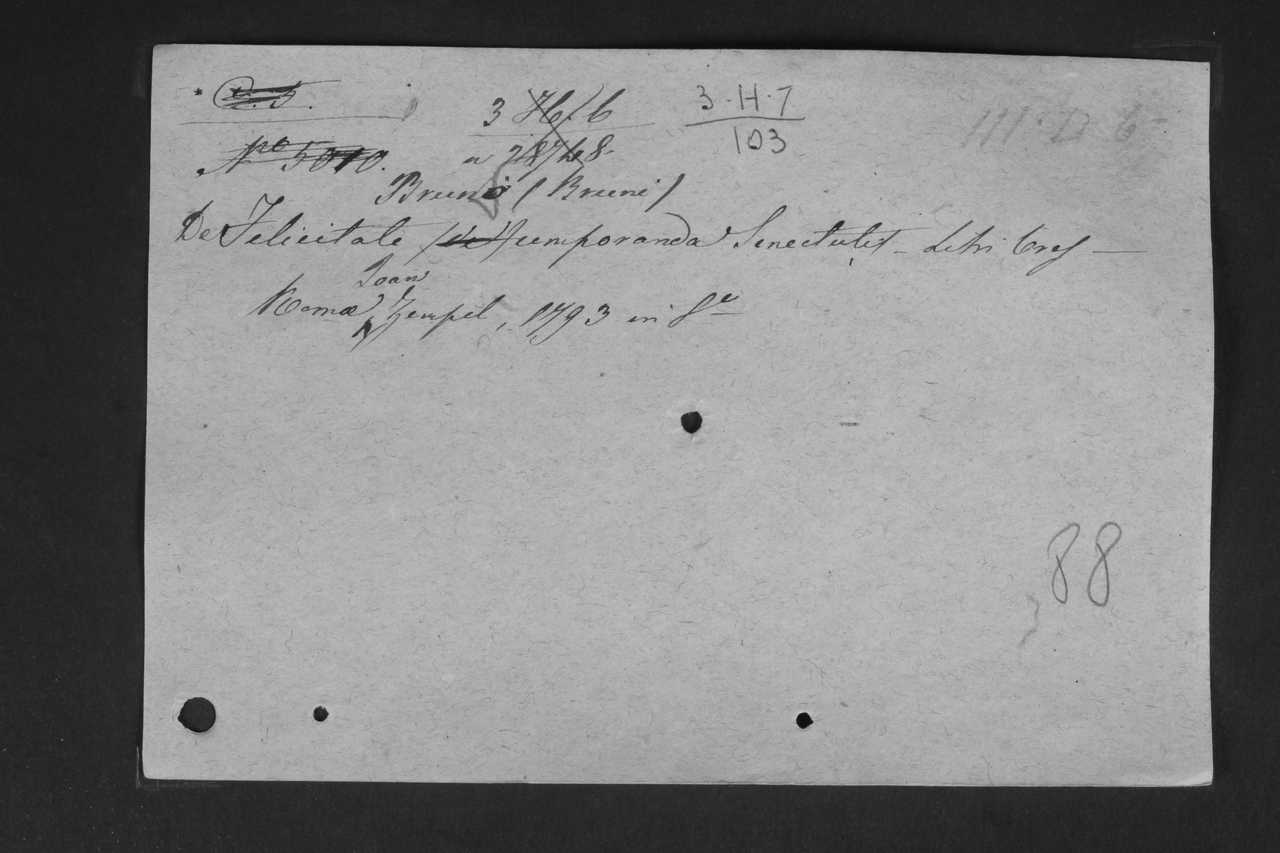 3 H 6
3·H·7
103
III·D·6
Nº 5010.
n 28748
Bruni (Bruni)
De Felicitate temporanda Senectutis – Libri tres —
Joan
Romæ Zempel, 1793 in 8º
88